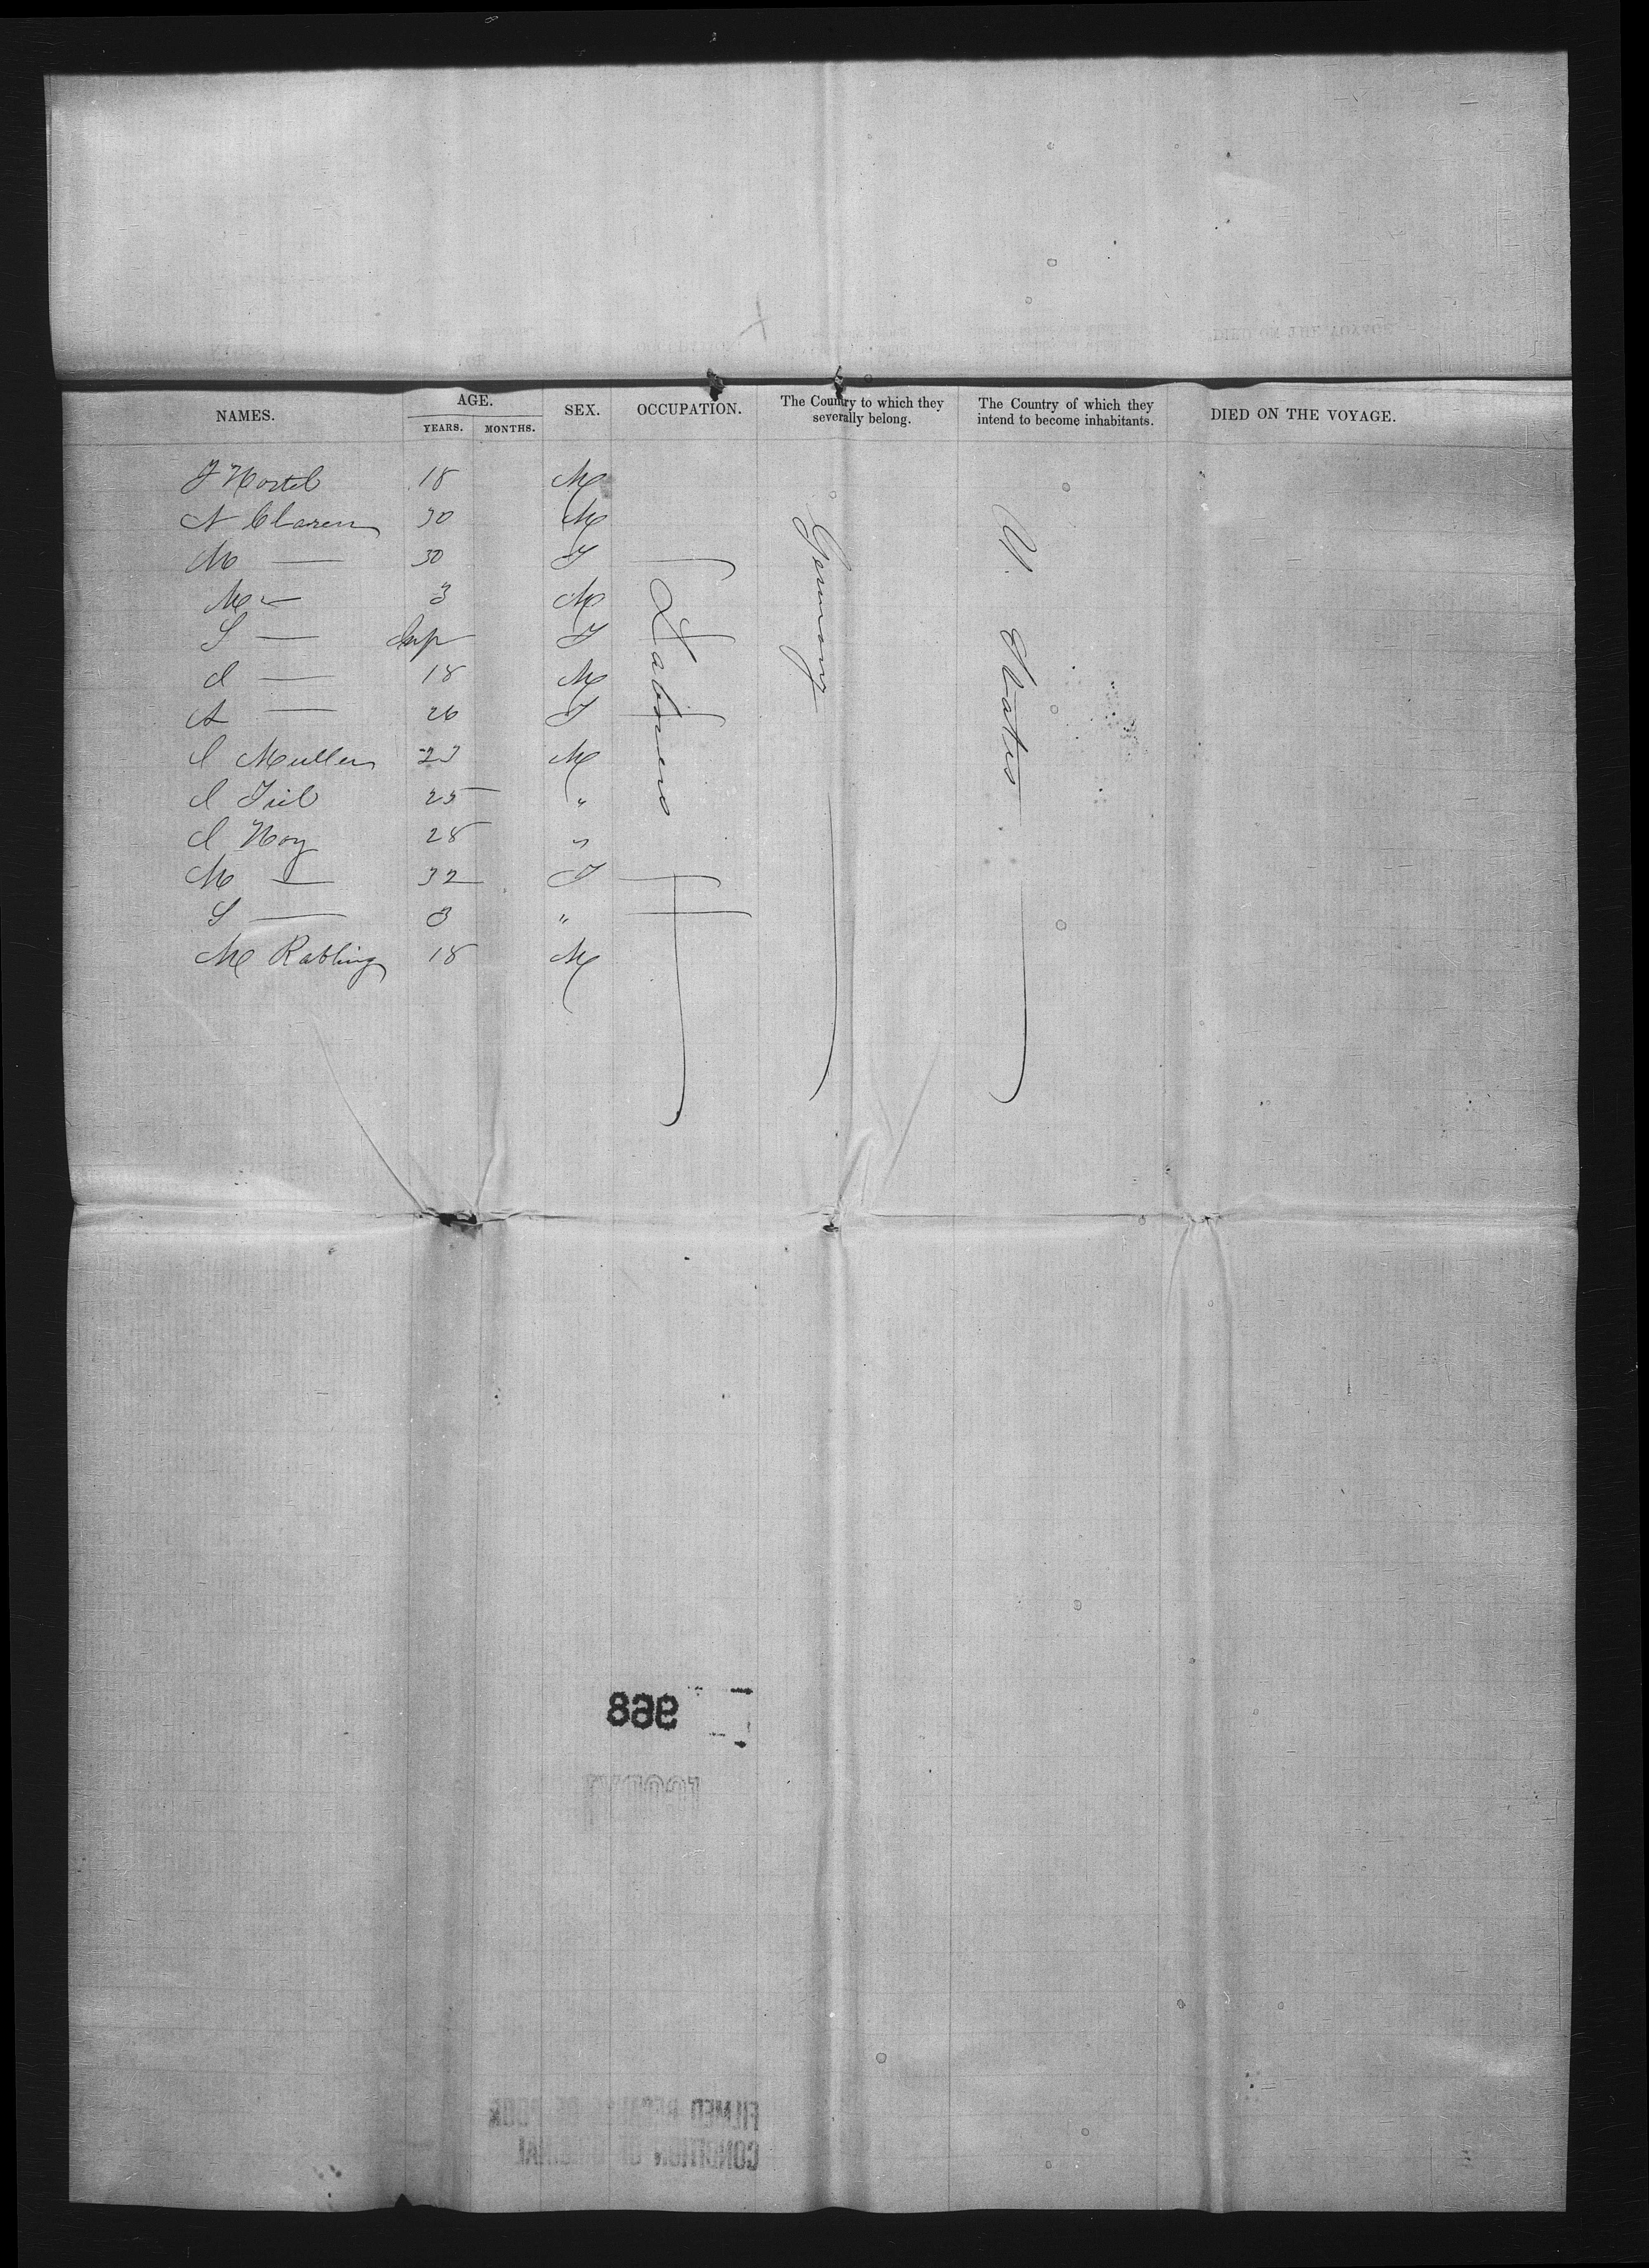 NAMES. AGE. SEX. OCCUPATION. The Country to which they severally belong. The Country of which they intend to become inhabitants. DIED ON THE VOYAGE.
YEARS. MONTHS.
18 M
N Claren 30 M
M — 30 F
M — 3 M
S — Inf F
— 18 M
A — 26 F
Muller 23 M
25 "
28 "
M — 32 F
S — 3 "
M Rabling 18 M
Laborers
Germany
U. States
968
FILMED BECAUSE OF POOR
CONDITION OF ORIGINAL